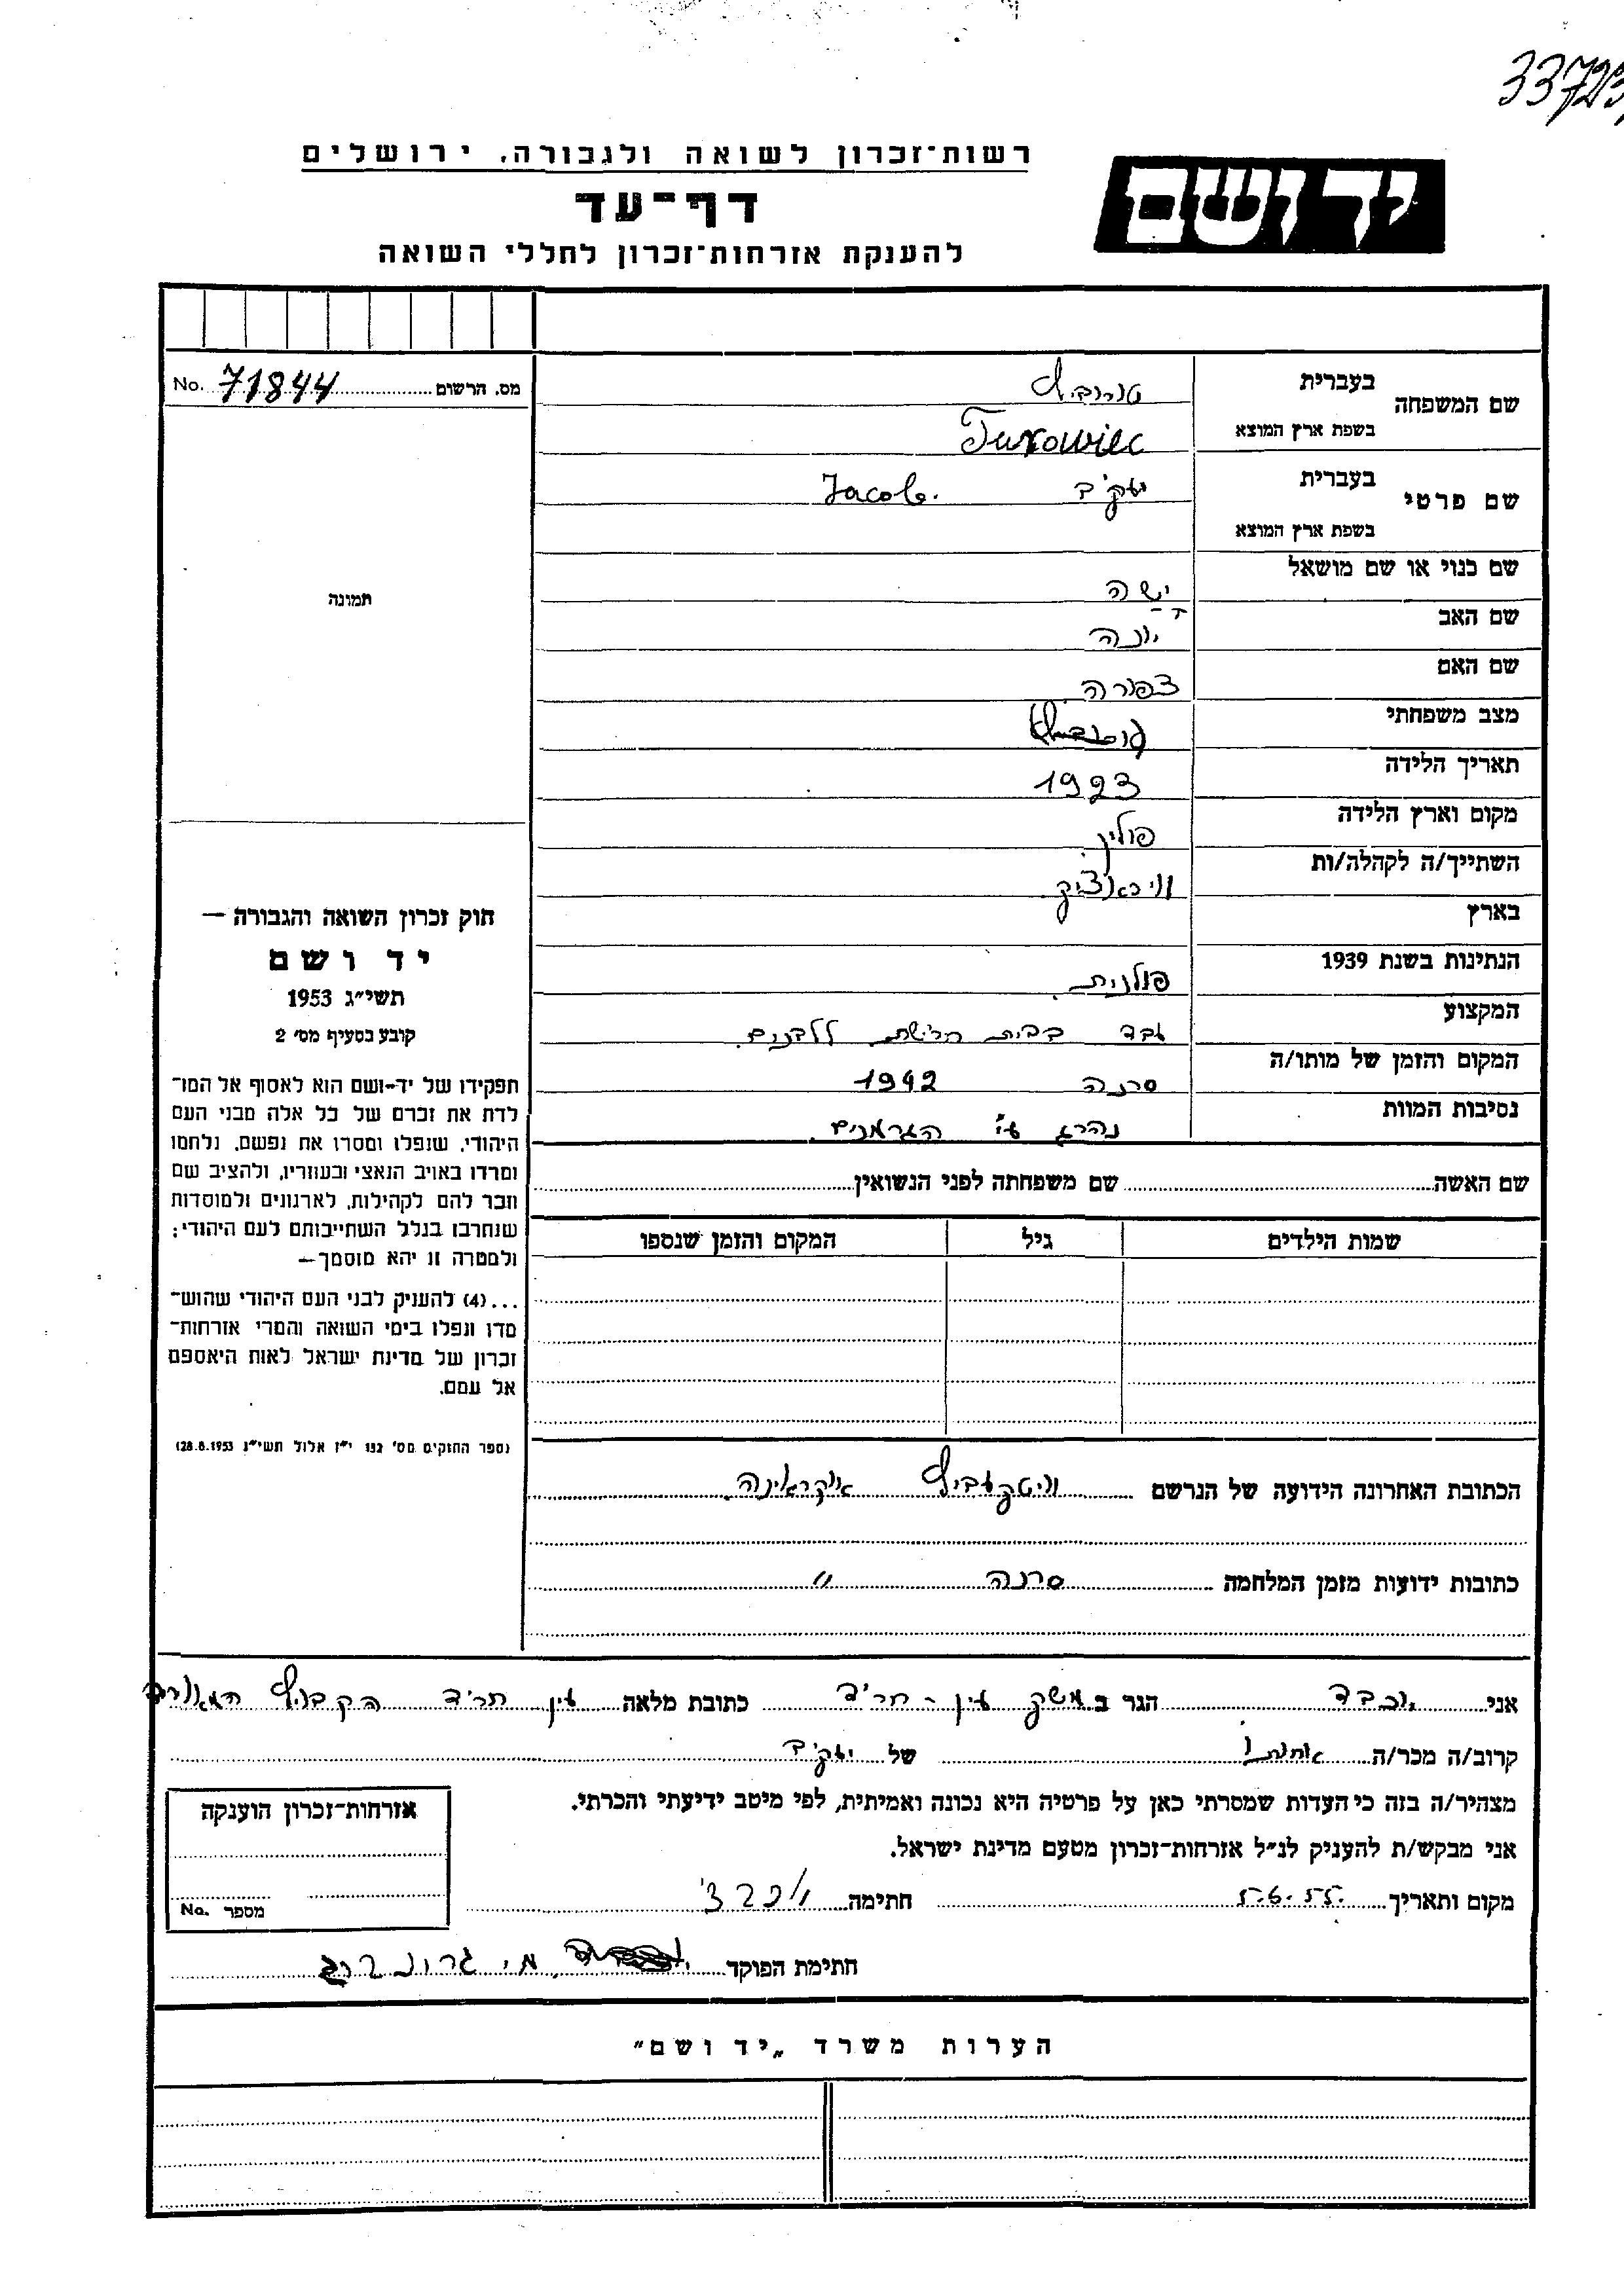 33723
רשות־זכרון לשואה ולגבורה, ירושלים
יד ושם
דף־עד
להענקת אזרחות־זכרון לחללי השואה
מס. הרשום 71844 No.
תמונה
שם המשפחה
בעברית
בשפת ארץ המוצא Turowiec
שם פרטי
בעברית יעקב Jacob.
בשפת ארץ המוצא
שם כנוי או שם מושאל ישה
שם האב יונה
שם האם צפורה
מצב משפחתי
תאריך הלידה 1923
מקום וארץ הלידה פולין
השתייך/ה לקהלה/ות
בארץ
הנתינות בשנת 1939 פולנית.
המקצוע עבד בבית חרישת ללבנים.
המקום והזמן של מותו/ה סרנה 1942
נסיבות המוות נהרג ע"י הגרמנים.
שם האשה שם משפחתה לפני הנשואין
שמות הילדים גיל המקום והזמן שנספו
חוק זכרון השואה והגבורה —
יד ושם
תשי״ג 1953
קובע בסעיף מס׳ 2
תפקידו של יד־ושם הוא לאסוף אל המו־
לדת את זכרם של כל אלה מבני העם
היהודי, שנפלו ומסרו את נפשם, נלחמו
ומרדו באויב הנאצי ובעוזריו, ולהציב שם
וזכר להם לקהילות, לארגונים ולמוסדות
שנחרבו בגלל השתייכותם לעם היהודי;
ולמטרה זו יהא מוסמך —
...(4) להעניק לבני העם היהודי שהוש־
מדו ונפלו בימי השואה והמרי אזרחות־
זכרון של מדינת ישראל לאות היאספם
אל עמם.
(ספר החוקים מס׳ 132 י״ז אלול תשי״ג 28.8.1953)
הכתובת האחרונה הידועה של הנרשם אוקראינה.
כתובות ידועות מזמן המלחמה סרנה "
אני יוכבד הגר ב משק עין - חרוד כתובת מלאה עין חרוד הקבוץ המאוחד
קרוב/ה מכר/ה אחותו של יעקב
מצהיר/ה בזה כי העדות שמסרתי כאן על פרטיה היא נכונה ואמיתית, לפי מיטב ידיעתי והכרתי.
אני מבקש/ת להעניק לנ״ל אזרחות־זכרון מטעם מדינת ישראל.
מקום ותאריך חתימה
חתימת הפוקד
אזרחות־זכרון הוענקה
מספר No.
הערות משרד „יד ושם״